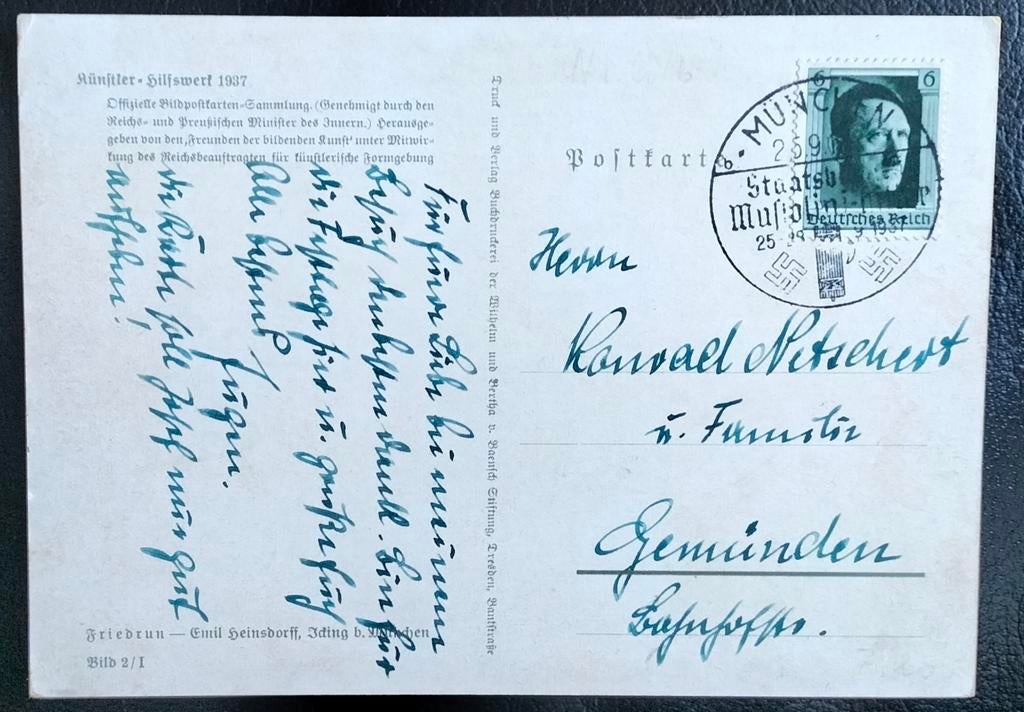 Künstler-Hilfswerk 1937
Offizielle Bildpostkarten-Sammlung. (Genehmigt durch den
Reichs- und Preußischen Minister des Innern.) Herausge-
geben von den „Freunden der bildenden Kunst“ unter Mitwir-
kung des Reichsbeauftragten für künstlerische Formgebung
Für Eure Liebe bei meinem
Besuch besten Dank. Bin
die u.
Alle
Eugen.
die Karte soll Josef nur gut
aufheben!
Friedrun — Emil Heinsdorff, Icking b. München
Bild 2/I
Druck und Verlag Buchdruckerei der Wilhelm und Bertha v. Baensch Stiftung, Dresden, Bankstraße
Postkarte
MÜNCHEN
25.9
Staatsb
Mussolini-
25-29 9 1937
6 6
Deutsches Reich
Herrn
Konrad Netschert
u. Familie
Gemünden
Bahnhofstr.